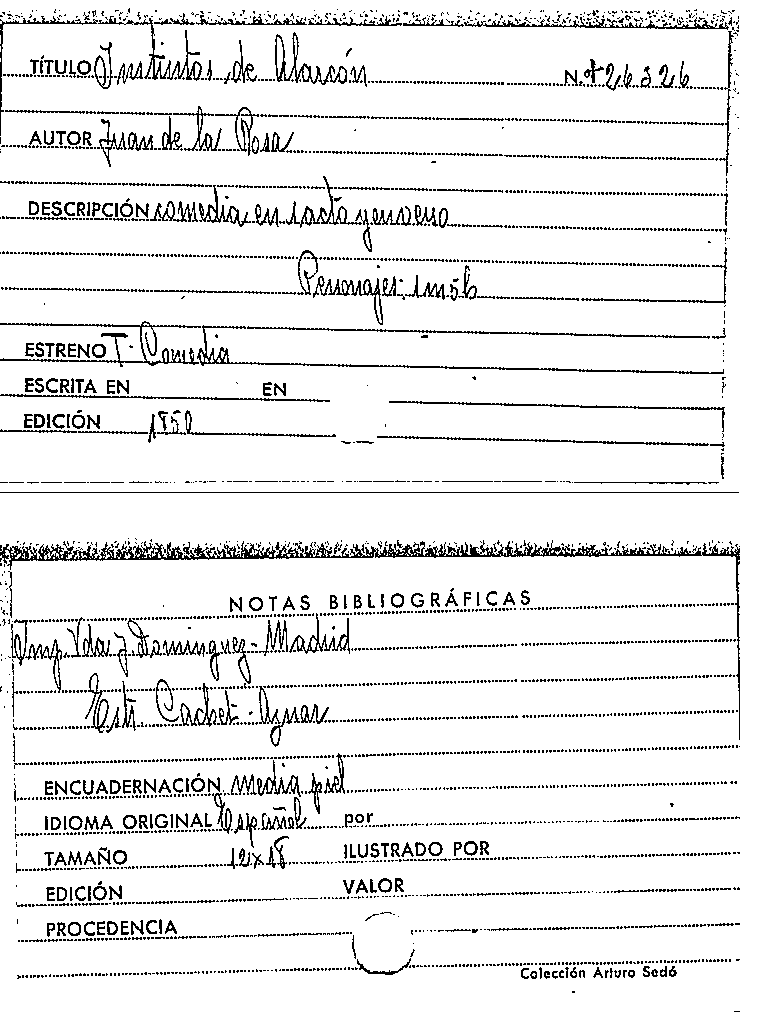 TÍTULO Instintos de Alarcón N.º 26326
AUTOR Juan de la Rosa
DESCRIPCIÓN comedia en 1 acto y en verso
Personajes: 1m 5h
ESTRENO T. Comedia
ESCRITA EN EN
EDICIÓN 1850
NOTAS BIBLIOGRÁFICAS
Imp. Vda J. Dominguez - Madrid
Estr. Cachet - Aznar
ENCUADERNACIÓN media piel
IDIOMA ORIGINAL Español por
TAMAÑO 12x18 ILUSTRADO POR
EDICIÓN VALOR
PROCEDENCIA
Colección Arturo Sedó